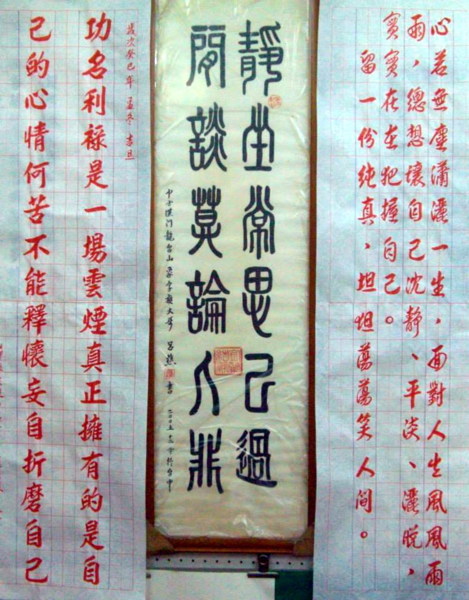 心若無塵瀟灑一生，面對人生風風雨
雨，總想壤自己沈靜、平淡、灑脫，
實實在在把握自己。
留一份純真，坦坦蕩蕩笑人間。
靜坐常思己過
閒談莫論人非
歲次癸巳年孟冬吉旦
功名利祿是一場雲煙真正擁有的是自
己的心情何苦不能釋懷妄自折磨自己